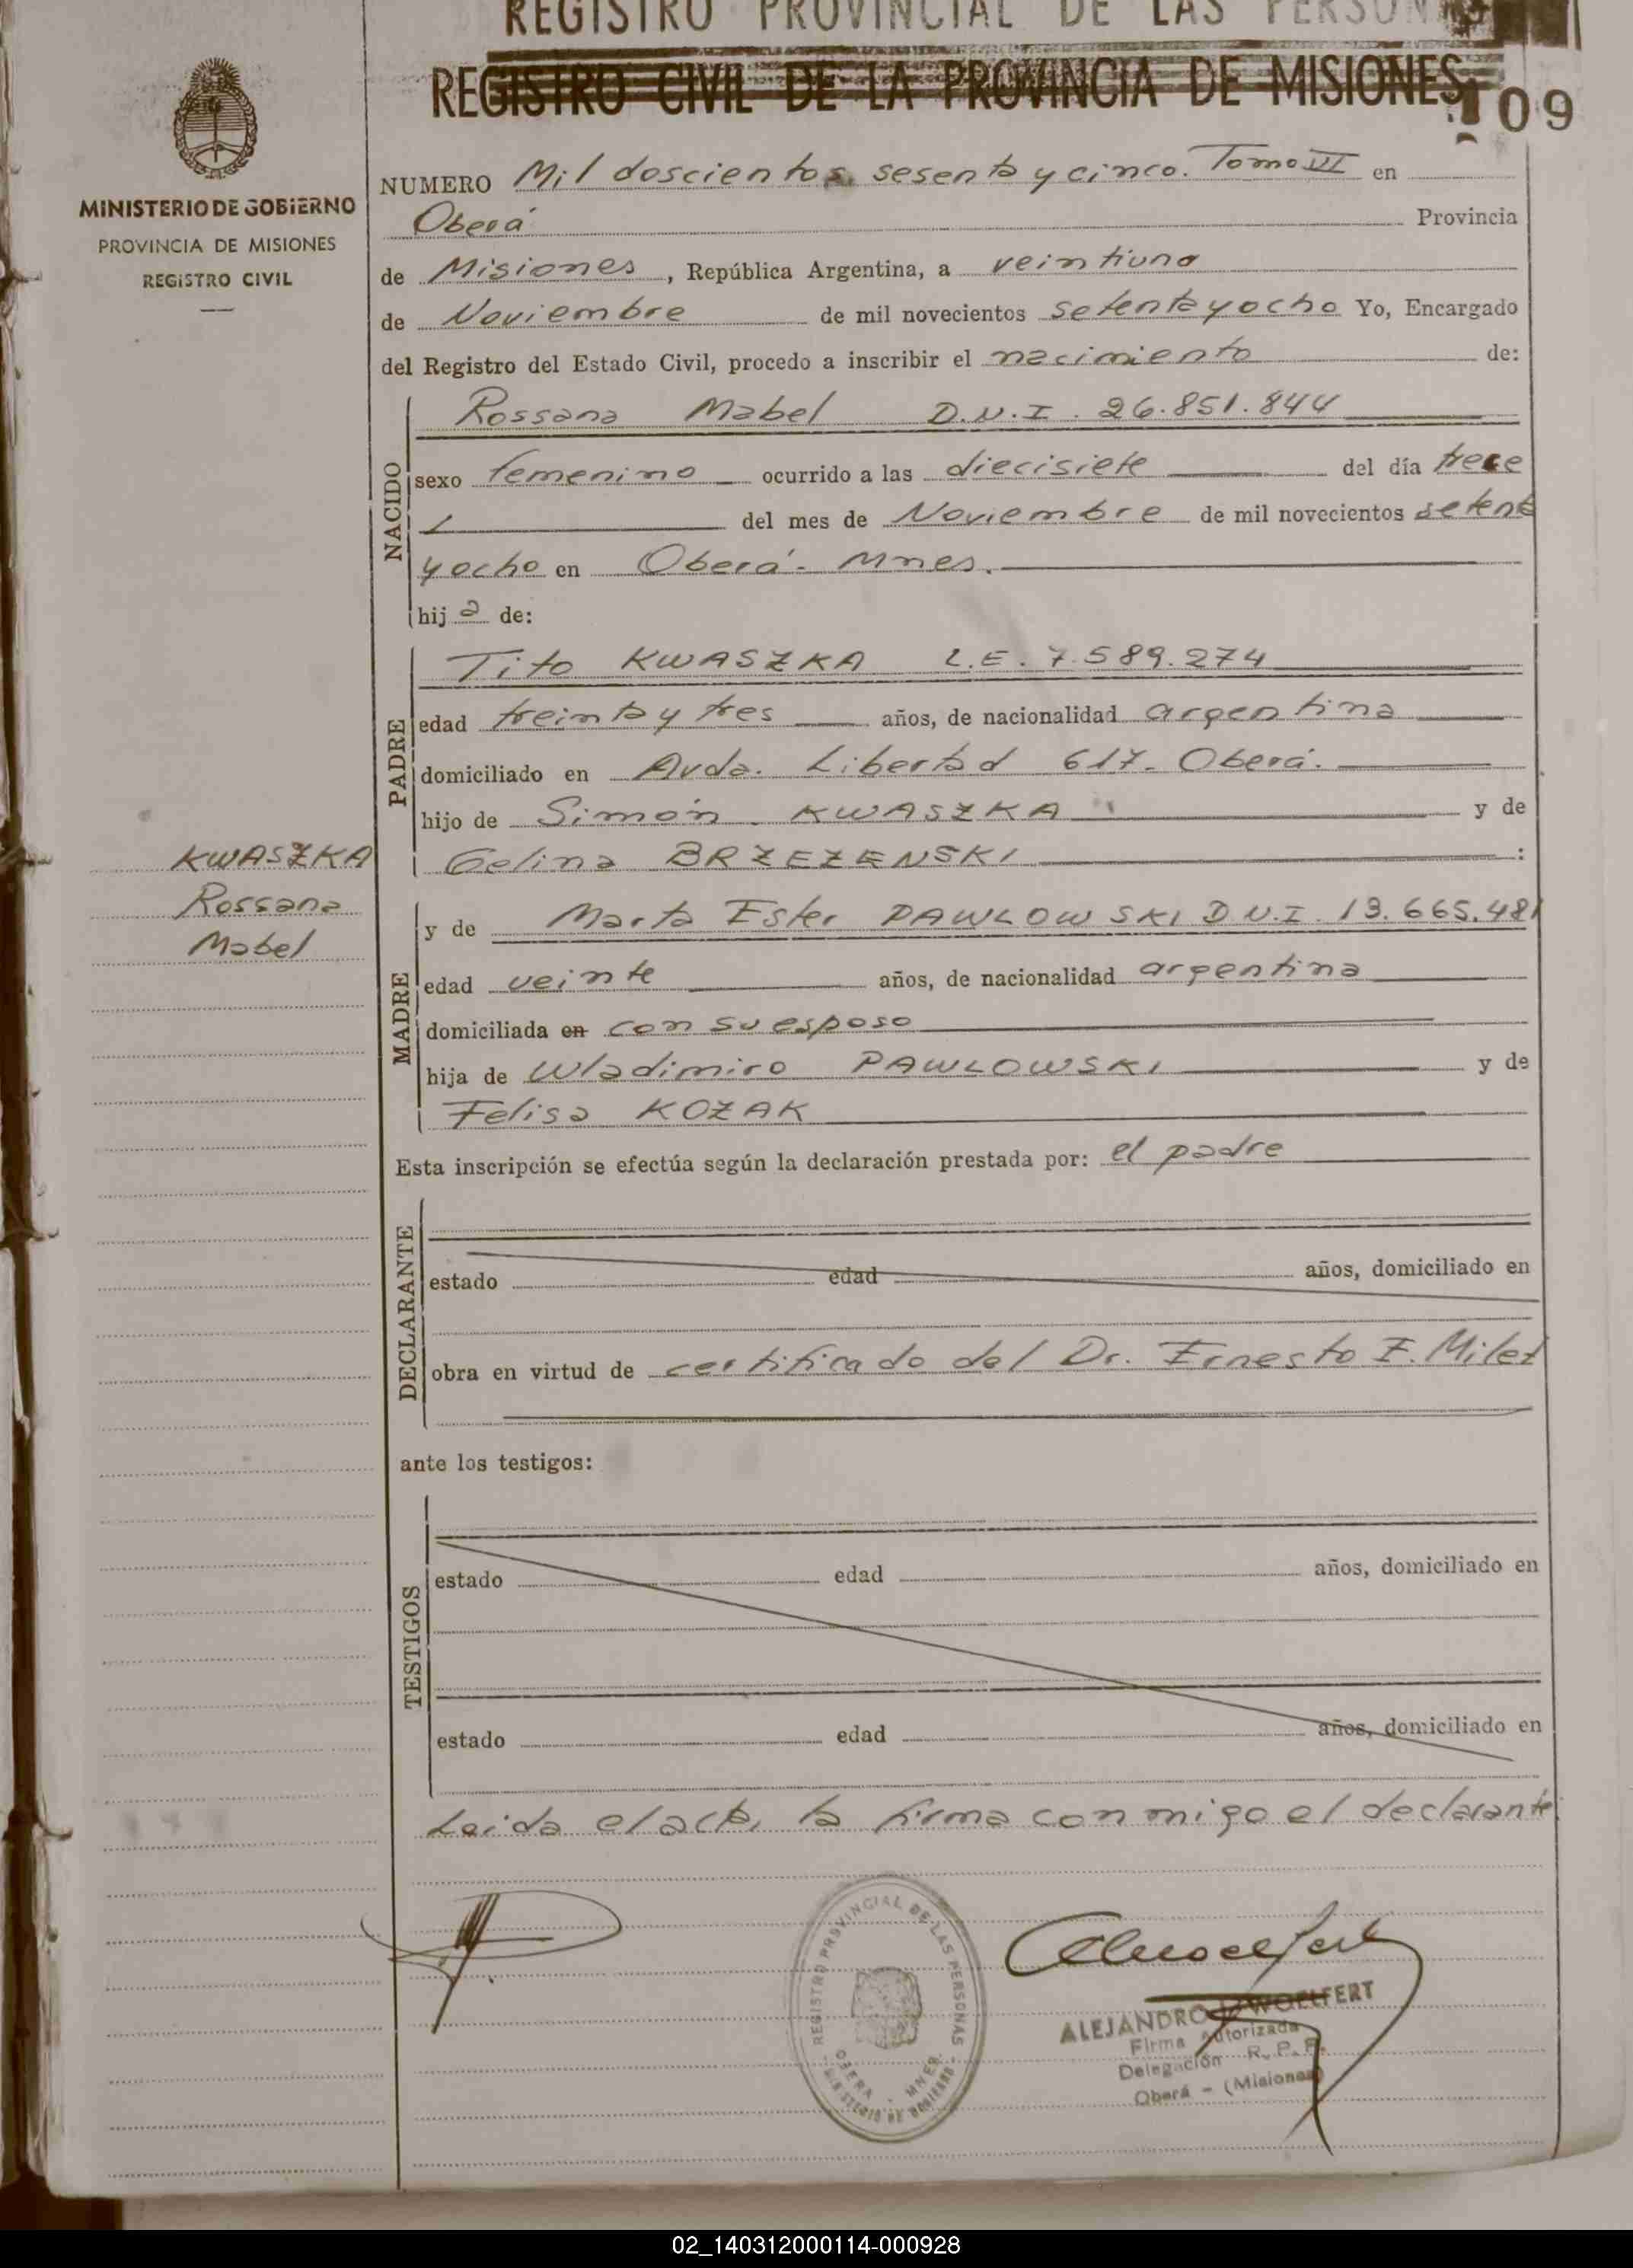 REGISTRO PROVINCIAL DE LAS PERSONAS
REGISTRO CIVIL DE LA PROVINCIA DE MISIONES
109
MINISTERIO DE GOBIERNO
PROVINCIA DE MISIONES
REGISTRO CIVIL
NUMERO Mil doscientos sesenta y cinco. Tomo VII en
Oberá Provincia
de Misiones, República Argentina, a veintiuno
de Noviembre de mil novecientos setenta y ocho Yo, Encargado
del Registro del Estado Civil, procedo a inscribir el nacimiento de:
NACIDO
Rossana Mabel D.N.I. 26.851.844
sexo femenino ocurrido a las diecisiete del día trece
del mes de Noviembre de mil novecientos setenta
y ocho en Oberá - Mnes.
hija de:
PADRE
Tito KWASZKA L.E. 7.589.274
edad treinta y tres años, de nacionalidad argentina
domiciliado en Avda. Libertad 617. Oberá.
hijo de Simón KWASZKA y de
Gelina BRZEZENSKI :
KWASZKA
Rossana
Mabel
MADRE
y de Marta Ester PAWLOWSKI D.N.I. 13.665.481
edad veinte años, de nacionalidad argentina
domiciliada en con su esposo
hija de Wladimiro PAWLOWSKI y de
Felisa KOZAK
Esta inscripción se efectúa según la declaración prestada por: el padre
DECLARANTE
estado edad años, domiciliado en
obra en virtud de certificado del Dr. Ernesto F. Milet
ante los testigos:
TESTIGOS
estado edad años, domiciliado en
estado edad años, domiciliado en
Leida el acta, la firma conmigo el declarante
REGISTRO PROVINCIAL DE LAS PERSONAS
OBERA - MNES.
MINISTERIO DE GOBIERNO
ALEJANDRO WOELFERT
Firma Autorizada
Delegación R. P. P.
Oberá - (Misiones)
02_140312000114-000928